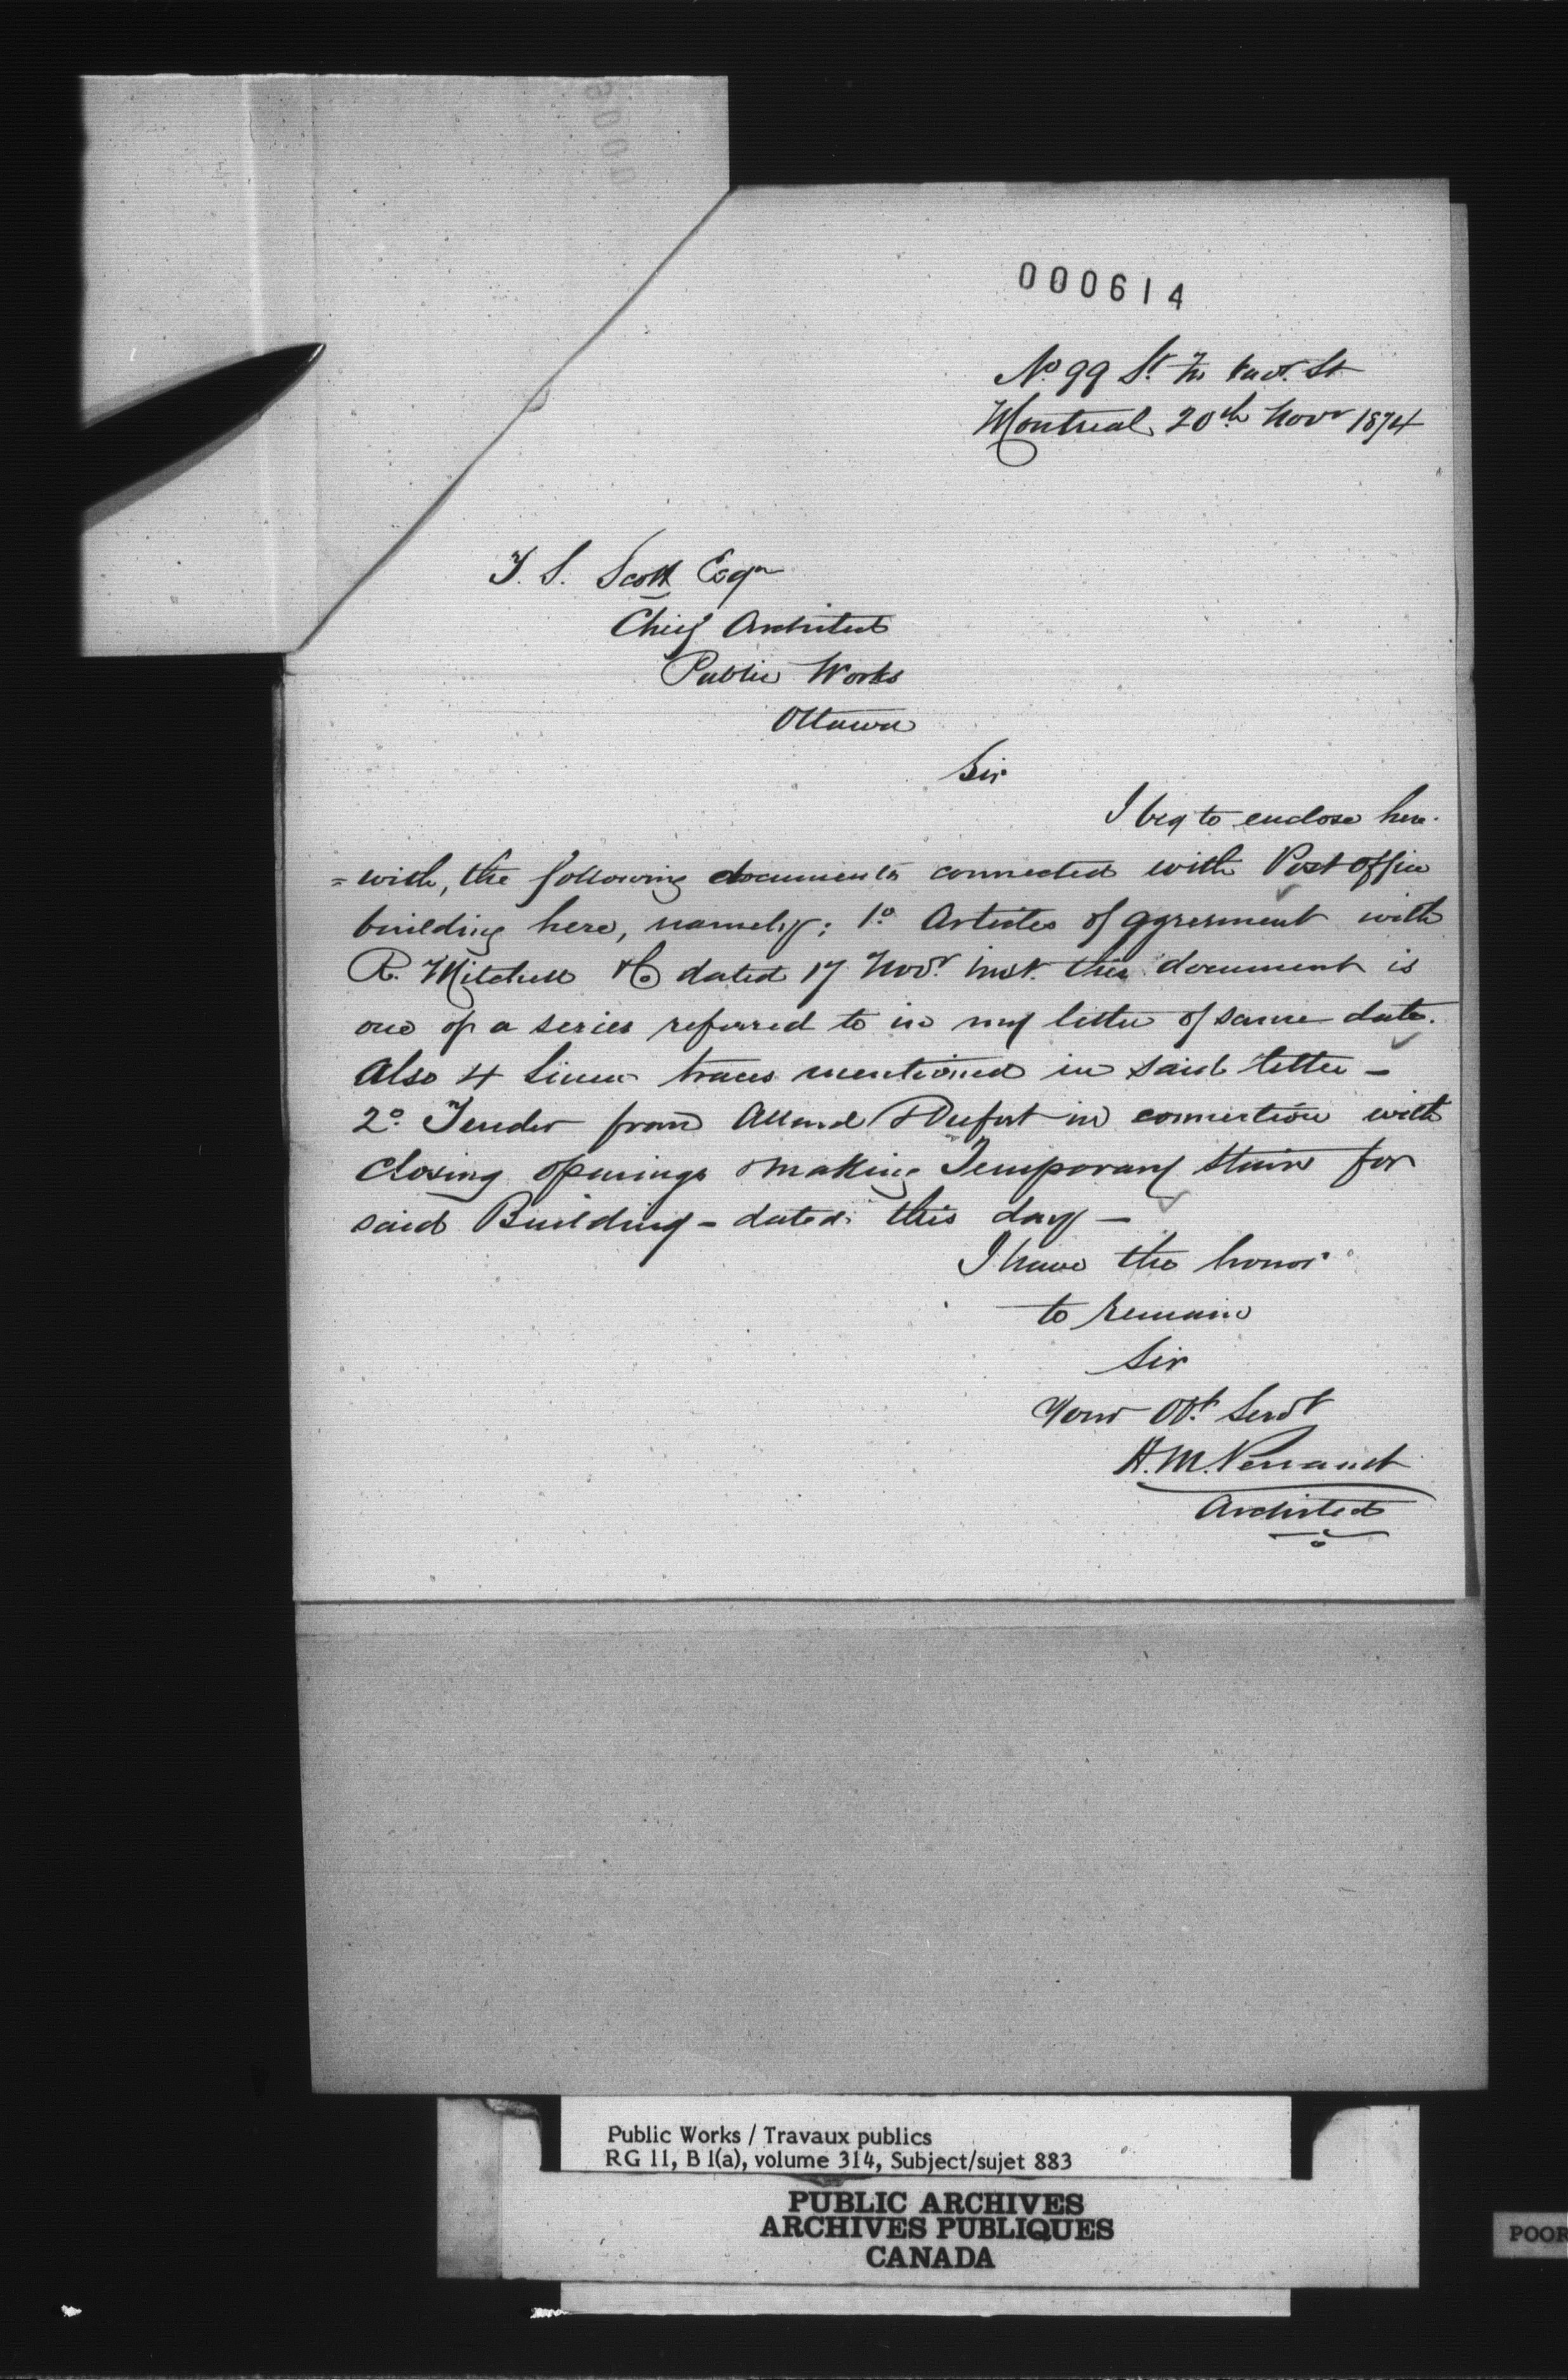 000614
No 99 St. Fs Xavr. St
Montreal 20th Novr 1874
T. S. Scott Esqr
Chief Architect
Public Works
Ottawa
Sir
I beg to enclose here
= with, the following documents connected with Post office
building here, namely; 1o Articles of agreement with
R. Mitchell & Co dated 17 Novr. inst. this document is
one of a series referred to in my letter of same date.
Also 4 Linen traces mentioned in said letter –
2o Tender from Allard & Dufort in connection with
closing openings & making Temporary stairs for
said Building – dated this day –
I have the honor
to remain
Sir
Your Obt. Servt
H. M. Perrault
Architect
Public Works / Travaux publics
RG 11, B 1(a), volume 314, Subject/sujet 883
PUBLIC ARCHIVES
ARCHIVES PUBLIQUES
CANADA
POOR